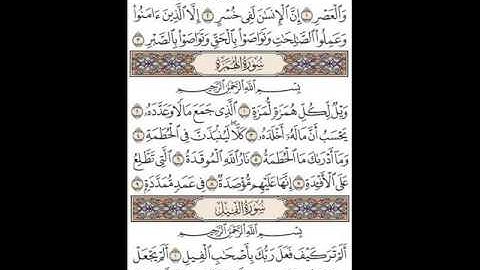 وَٱلْعَصْرِ ١ إِنَّ ٱلْإِنسَٰنَ لَفِى خُسْرٍ ٢ إِلَّا ٱلَّذِينَ ءَامَنُوا۟
وَعَمِلُوا۟ ٱلصَّٰلِحَٰتِ وَتَوَاصَوْا۟ بِٱلْحَقِّ وَتَوَاصَوْا۟ بِٱلصَّبْرِ ٣
سُورَةُ الهُمَزَةِ
بِسْمِ ٱللَّهِ ٱلرَّحْمَٰنِ ٱلرَّحِيمِ
وَيْلٌ لِّكُلِّ هُمَزَةٍ لُّمَزَةٍ ١ ٱلَّذِى جَمَعَ مَالًا وَعَدَّدَهُۥ ٢
يَحْسَبُ أَنَّ مَالَهُۥٓ أَخْلَدَهُۥ ٣ كَلَّا ۖ لَيُنۢبَذَنَّ فِى ٱلْحُطَمَةِ ٤
وَمَآ أَدْرَىٰكَ مَا ٱلْحُطَمَةُ ٥ نَارُ ٱللَّهِ ٱلْمُوقَدَةُ ٦ ٱلَّتِى تَطَّلِعُ
عَلَى ٱلْأَفْـِٔدَةِ ٧ إِنَّهَا عَلَيْهِم مُّؤْصَدَةٌ ٨ فِى عَمَدٍ مُّمَدَّدَةٍۭ ٩
سُورَةُ الفِيلِ
بِسْمِ ٱللَّهِ ٱلرَّحْمَٰنِ ٱلرَّحِيمِ
أَلَمْ تَرَ كَيْفَ فَعَلَ رَبُّكَ بِأَصْحَٰبِ ٱلْفِيلِ ١ أَلَمْ يَجْعَلْ